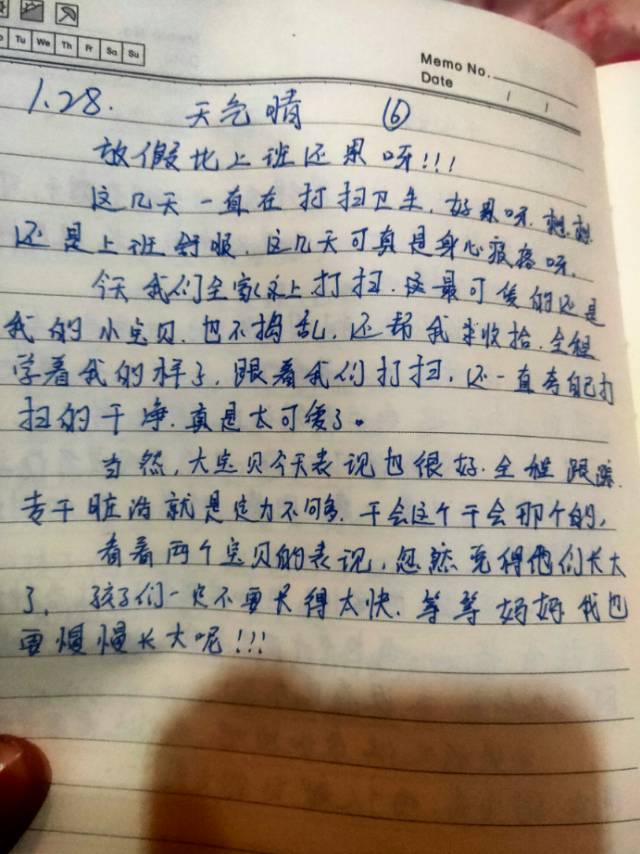 Tu We Th Fr Sa Su
Memo No.
Date / /
1.28. 天气晴 ⑥
放假比上班还累呀!!!
这几天一直在打扫卫生,好累呀,想想
还是上班舒服,这几天可真是身心疲惫呀,
今天我们全家一上打扫,这最可爱的还是
我的小宝贝,也不捣乱,还帮我来收拾,全程
学着我的样子,跟着我们打扫,还一直夸自己打
扫的干净,真是太可爱了。
当然,大宝贝今天表现也很好,全程跟踪,
专干脏活就是定力不够,干会这个干会那个的,
看着两个宝贝的表现,忽然觉得他们长大
了,孩子们一定不要长得太快,等等妈妈我也
要慢慢长大呢!!!